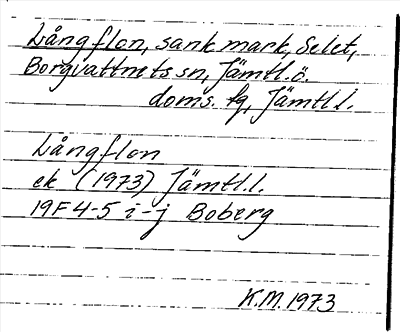 Långflon, sank mark, Selet,
Borgvattnets sn, Jämtl.ö.
doms. fg, Jämtl.l.
Långflon
ek (1973) Jämtl.l.
19F4-5 i-j Boberg
K.M. 1973